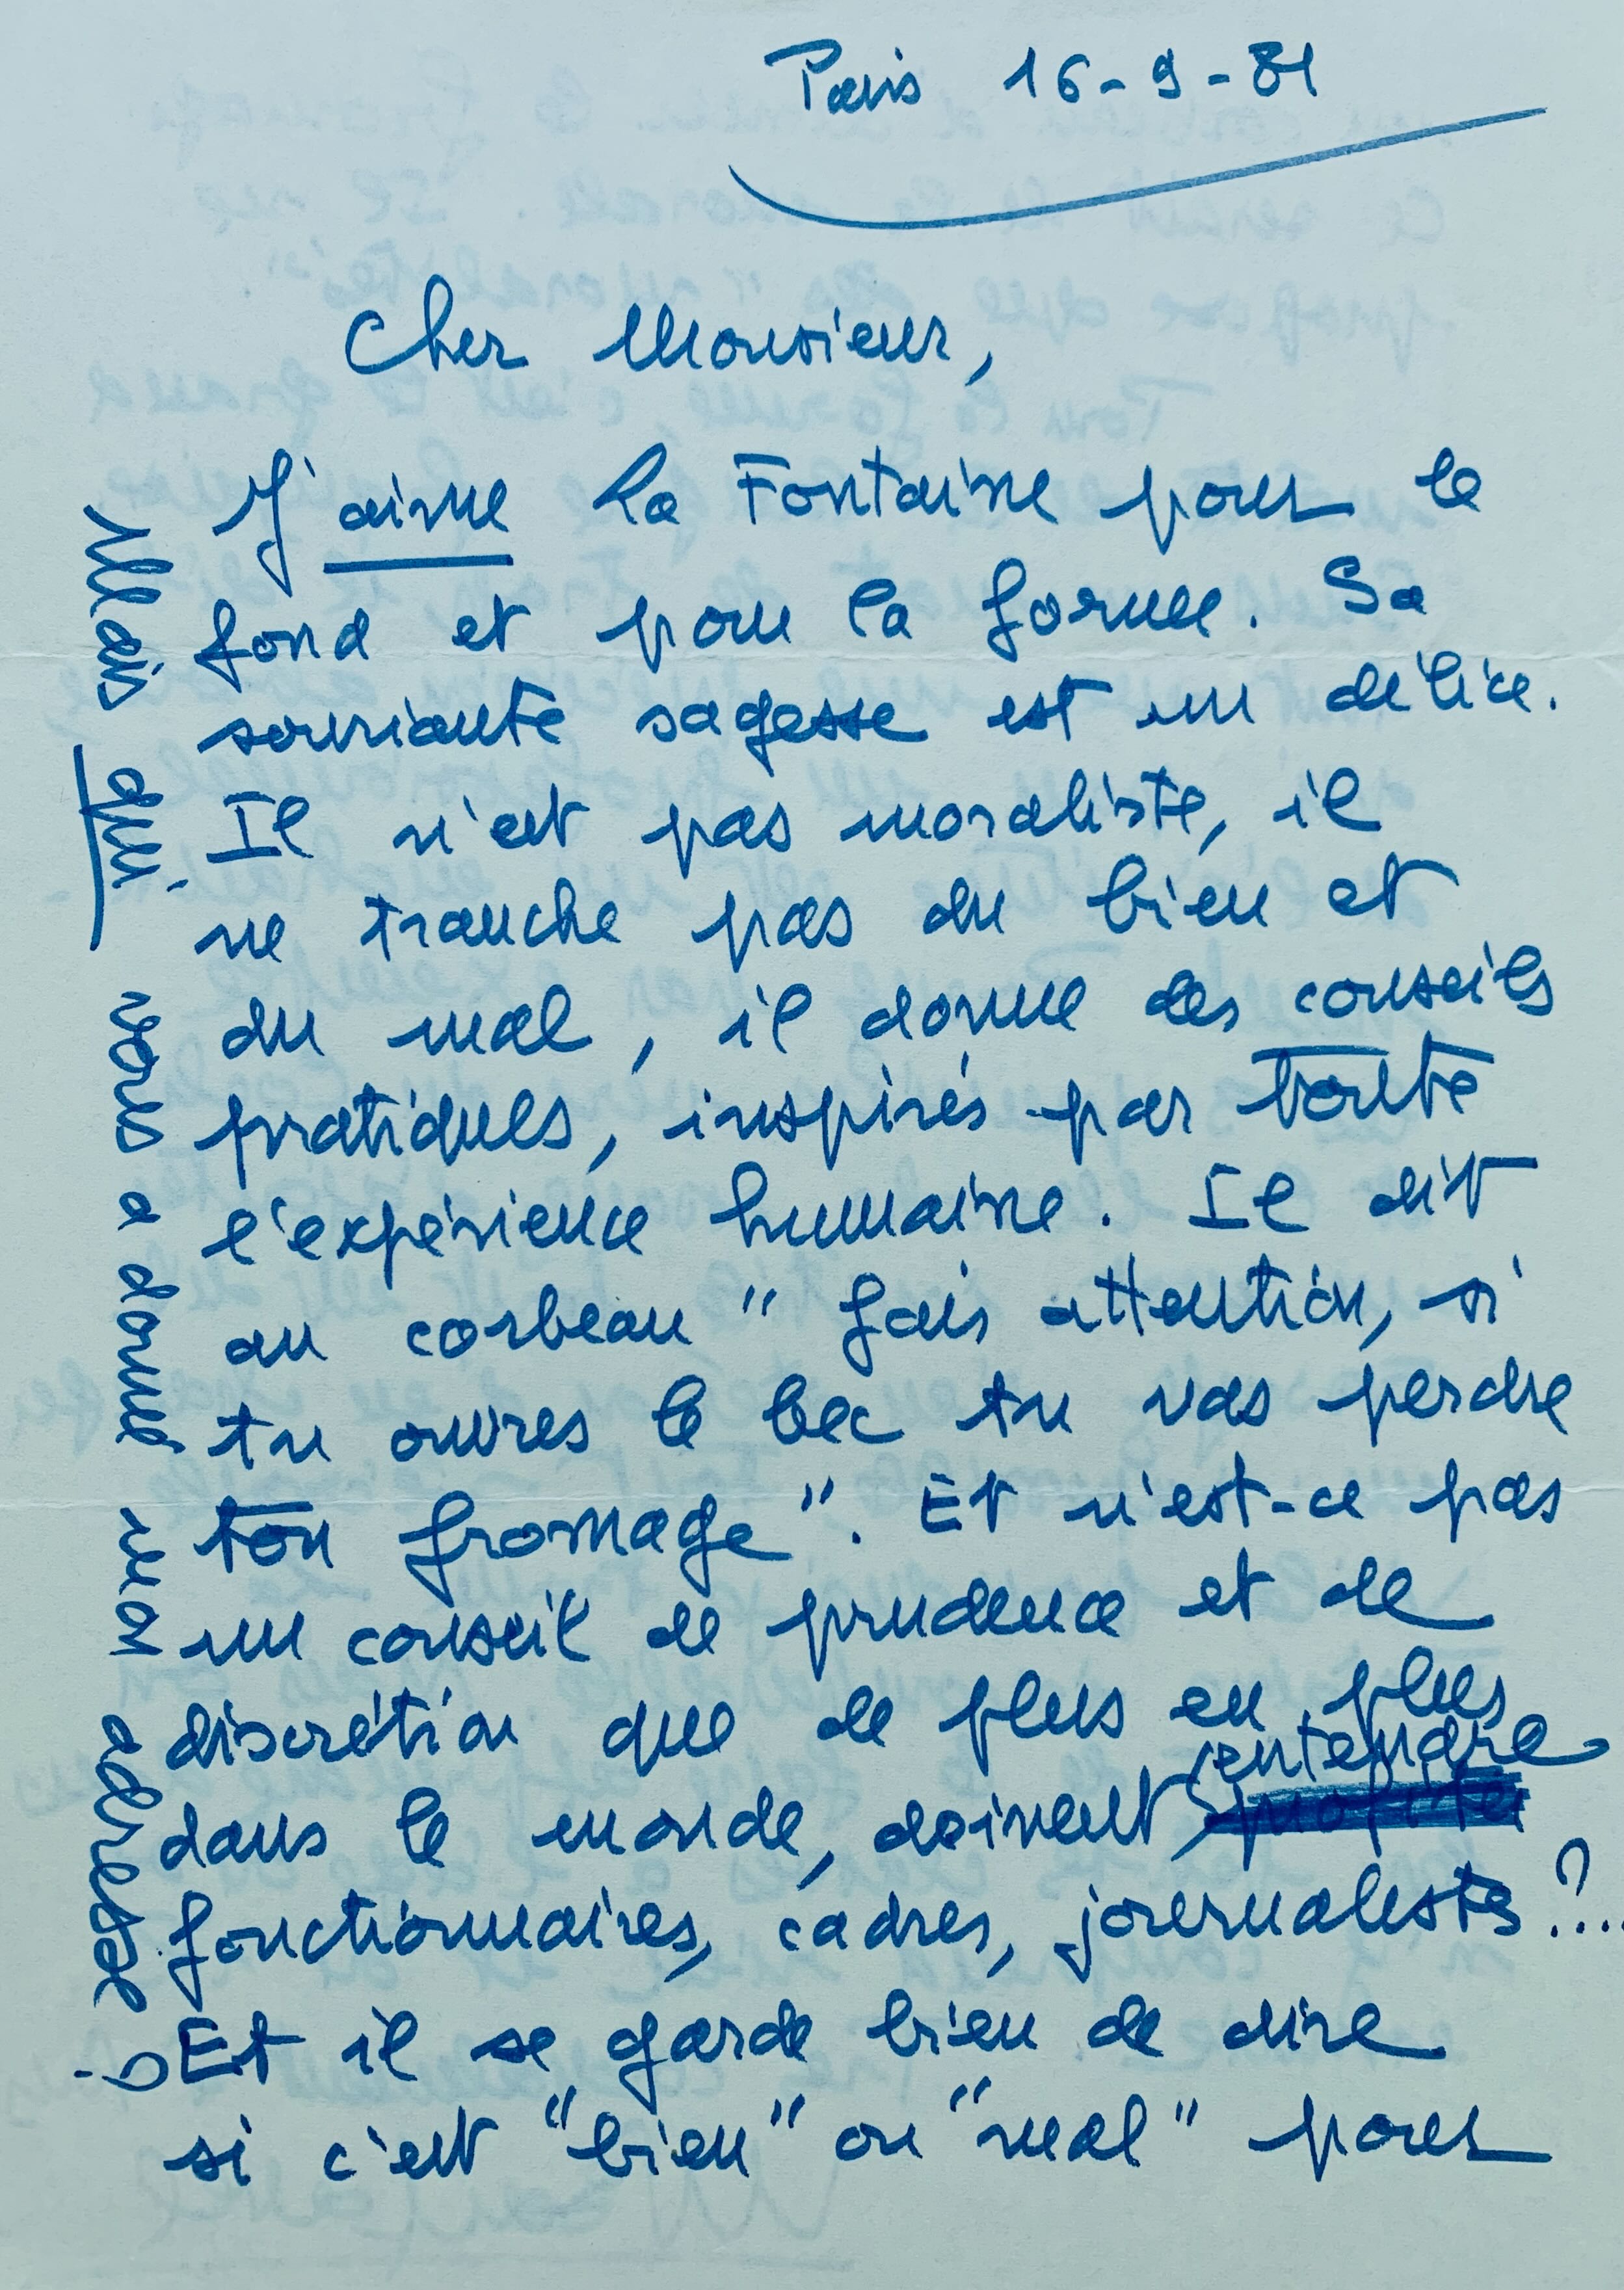 Paris 16-9-81
Cher Monsieur,
J'aime La Fontaine pour le
fond et pour la forme. Sa
souriante sagesse est un délice.
Il n'est pas moraliste, il
ne tranche pas du bien et
du mal, il donne des conseils
pratiques, inspirés par toute
l'expérience humaine. Il dit
au corbeau " fais attention, si
tu ouvres le bec tu vas perdre
ton fromage ". Et n'est-ce pas
un conseil de prudence et de
discrétion que de plus en plus,
entendre
dans le monde, doivent
fonctionnaires, cadres, journalistes ?...
Et il se garde bien de dire
si c'est "bien" ou "mal" pour
Mais qui vous a donné mon adresse ?